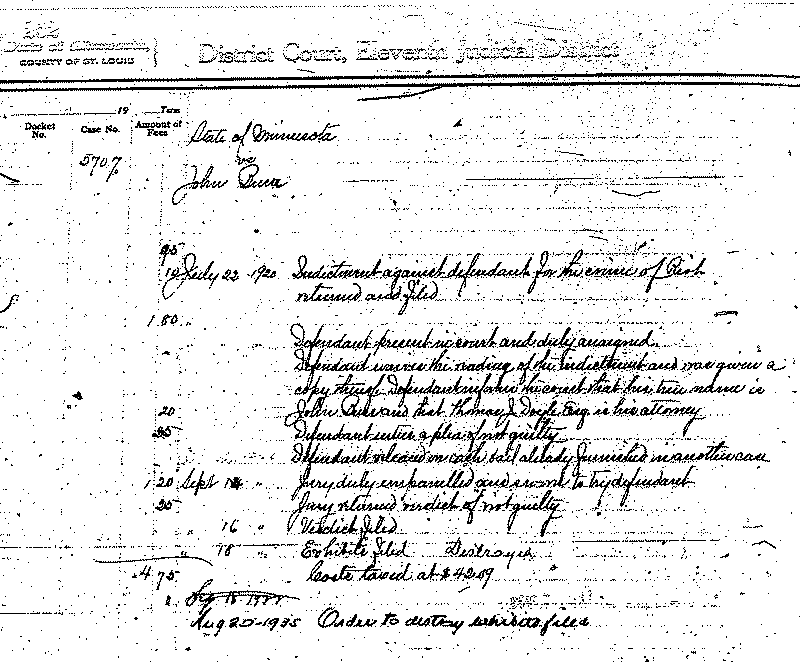 262
State of Minnesota,
COUNTY OF ST. LOUIS
District Court, Eleventh Judicial District
19 Term
Docket No. Case No. Amount of Fees
State of Minnesota
5707 vs
John Burr
95
10 July 22 1920 Indictment against defendant for the crime of Riot
returned and filed
1 80 "
Defendant present in court and duly arraigned.
Defendant waives the reading of the indictment and was given a
copy thereof Defendant informs the court that his true name is
20 John and that Thomas J Doyle Esq is his attorney
35 Defendant enters a plea of not guilty
Defendant released on cash bail already furnished in another case
1 20 Sept 14 " Jury duly empanelled and sworn to try defendant
25 Jury returned verdict of not guilty
" 16 " Verdict filed
" 18 " Exhibits filed Destroyed
4 75 Costs taxed at $42.09
Aug 20-1935 Order to destroy exhibits filed